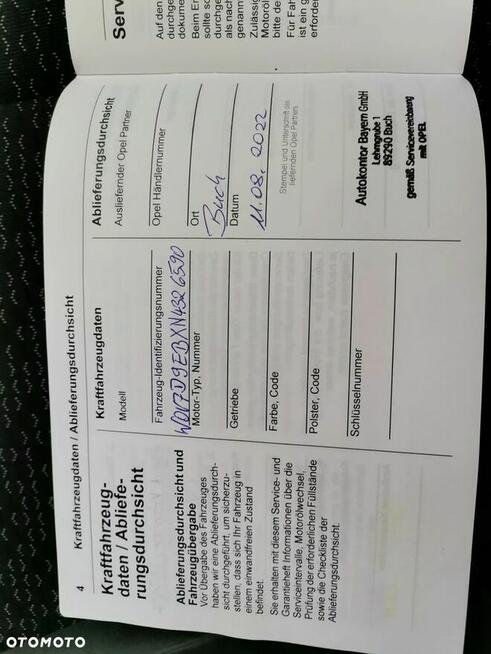 4
Kraftfahrzeugdaten / Ablieferungsdurchsicht
Kraftfahrzeug-
daten / Abliefe-
rungsdurchsicht
Ablieferungsdurchsicht und
Fahrzeugübergabe
Vor Übergabe des Fahrzeuges
haben wir eine Ablieferungsdurch-
sicht durchgeführt, um sicherzu-
stellen, dass sich Ihr Fahrzeug in
einem einwandfreien Zustand
befindet.
Sie erhalten mit diesem Service- und
Garantieheft Informationen über die
Serviceintervalle, Motorölwechsel,
Prüfung der erforderlichen Füllstände
sowie die Checkliste der
Ablieferungsdurchsicht.
Kraftfahrzeugdaten
Modell
Fahrzeug-Identifizierungsnummer
W0V7D9EBXN4326590
Motor-Typ, Nummer
Getriebe
Farbe, Code
Polster, Code
Schlüsselnummer
Ablieferungsdurchsicht
Ausliefernder Opel Partner
Opel Händlernummer
Ort
Buch
Datum
11.08.2022
Stempel und Unterschrift des
liefernden Opel Partners
Autokontor Bayern GmbH
Lehmgrube 1
89290 Buch
gemäß Servicevereinbarung
mit OPEL
Serv
Auf den
durchge
dokume
Beim Er
sollte so
durchge
als nach
genann
Zulässig
Motoröl
bitte de
Für Fah
ist ein g
erforder
OTOMOTO